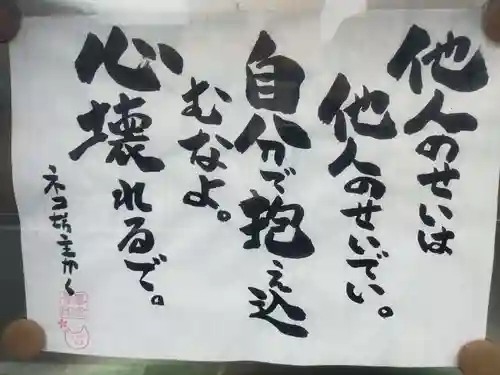 他人のせいは
他人のせいでい。
自分で抱え込
むなよ。
心壊れるで。
ネコ坊主かく